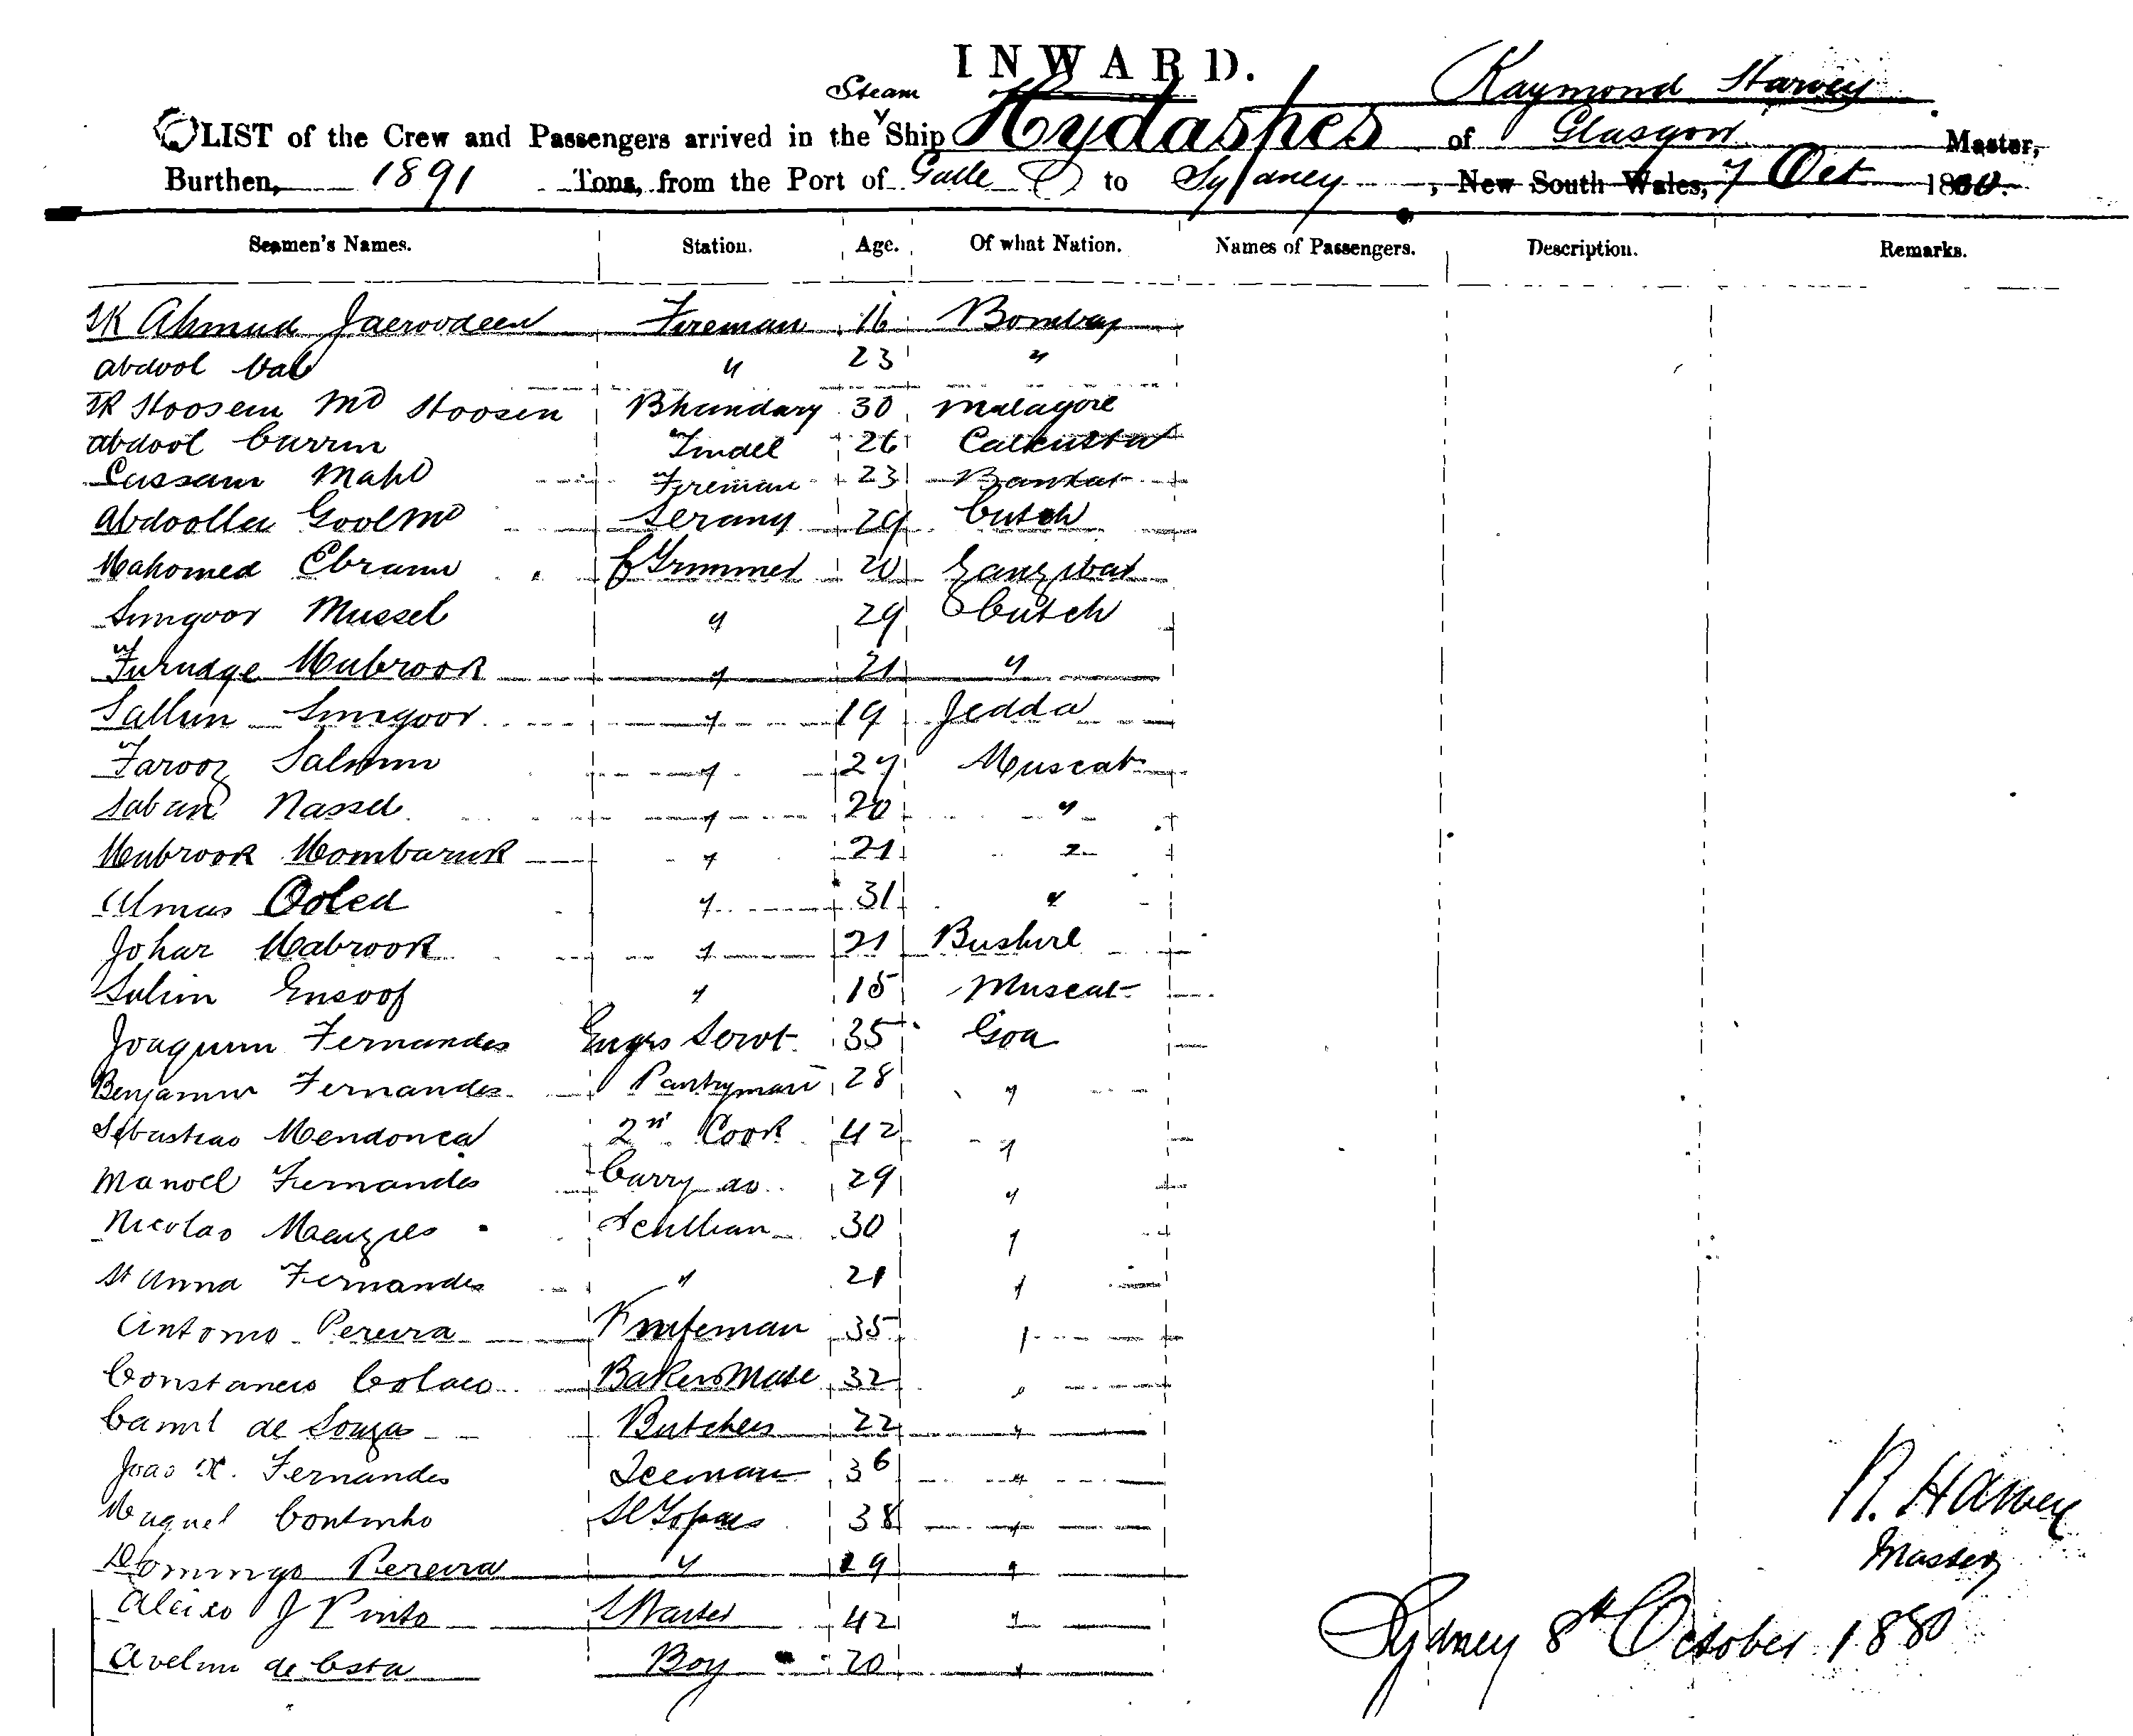 INWARD.
Steam Raymond Harvey
LIST of the Crew and Passengers arrived in the Ship Hydaspes of Glasgow Master,
Burthen, 1891 Tons, from the Port of Galle to Sydney, New South Wales, 7 Oct 1880.
Seamen's Names. Station. Age. Of what Nation. Names of Passengers. Description. Remarks.
SK Ahmud Jaeroodeen Fireman 16 Bombay
Abdool " 23 "
SK Hoosein Md Hoosen Bhandary 30
Abdool Currim Tindel 26 Calcutta
Cassam Mahd Fireman 23 Bankat
Abdoolla Goolmd Serang 29 Cutch
Mahomed Ebram Trimmer 20 Zanzibar
Sungoor Mussel " 29 Cutch
Furudge Mubrook " 21 "
Sallim Sungoor " 19 Jedda
Farooz Salmin " 27 Muscat
Saban Nassel " 20 "
Mubrook Mombaruk " 21 "
Almas Ooled " 31 "
Johar Mabrook " 21 Bushire
Salim Ensoof " 15 Muscat
Joaquim Fernandes Engrs Servt 35 Goa
Benjamin Fernandes Pantryman 28 "
Sebastiao Mendonca 2nd Cook 42 "
Manoel Fernandes Curry do 29 "
Nicolao Menezes Scullian 30 "
St Anna Fernandes " 21 "
Antonio Pereira Knifeman 35 "
Constancio Colaco Bakers Mate 32 "
Camil de Souza Butcher 22 "
Joao X. Fernandes Iceman 36 "
Miguel Coutinho Topas 38 "
Domingo Pereira " 29 "
Aleixo J Pinto Waiter 42 "
Avelin de Costa Boy 20 "
R. Harvey
Master
Sydney 8th October 1880